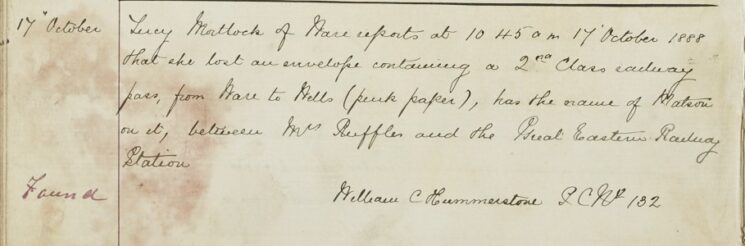 17th October
Lucy Mortlock of Ware reports at 10 45 a m 17 October 1888
that she lost an envelope containing a 2nd Class railway
pass, from Ware to Wells (pink paper), has the name of Watson
on it, between Mrs Ruffles and the Great Eastern Railway
Station
Found
William C Hummerstone P C No 132